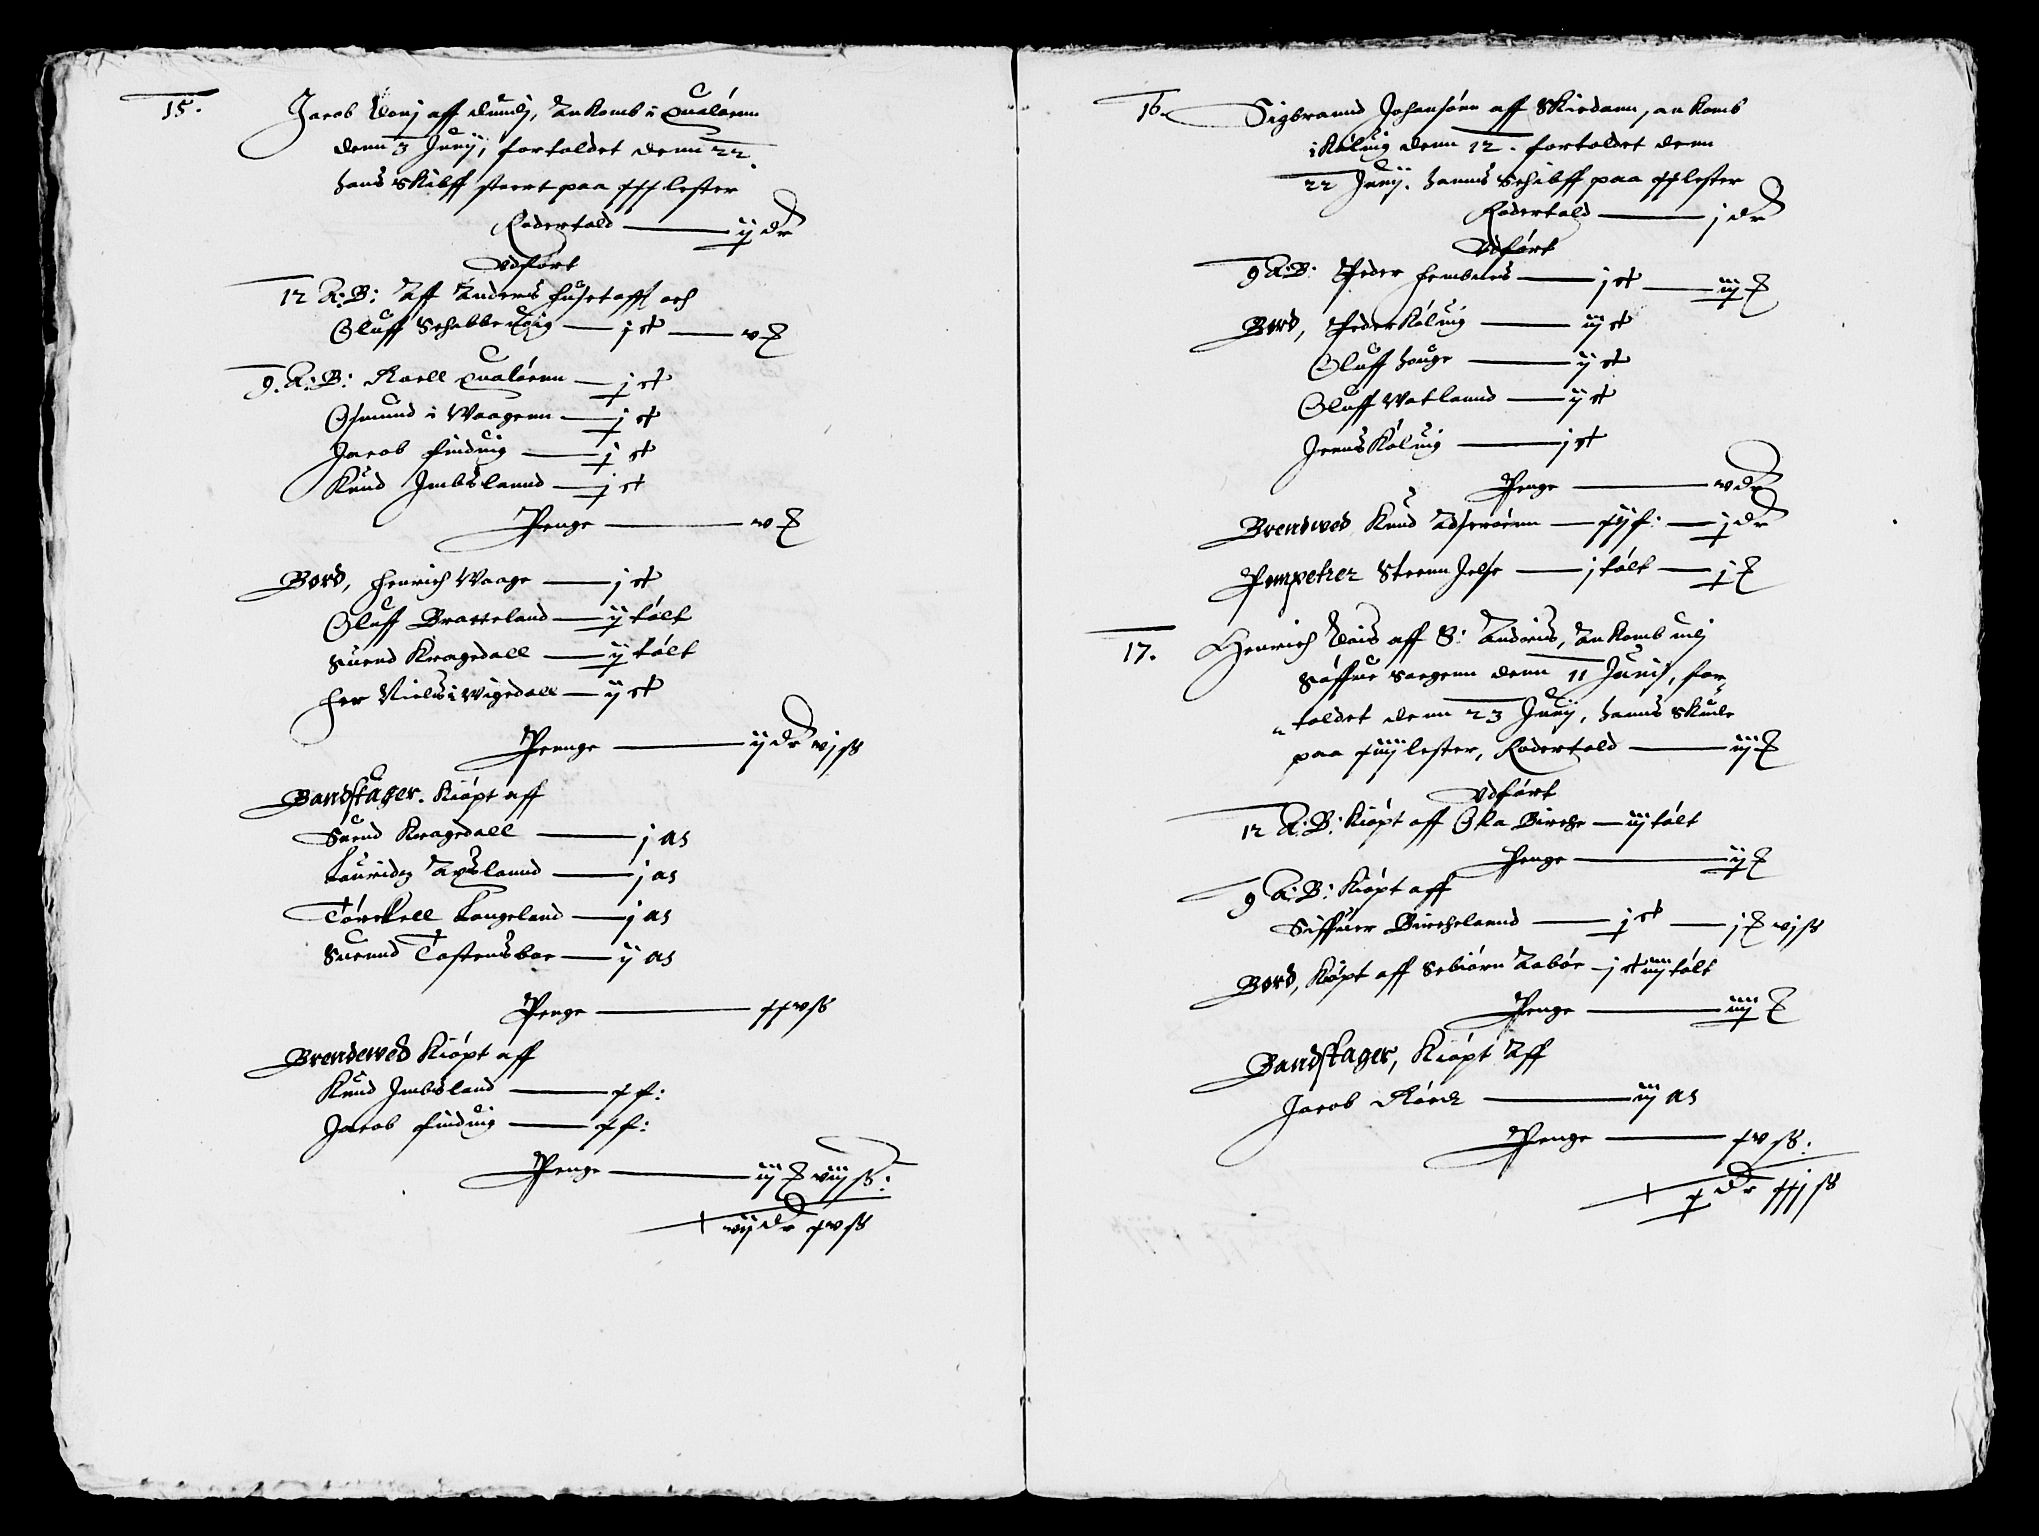 15. Jacob Dovj aff Dundj, Ankomb i Qualøenn
denn 3 Junij, fortoldet denn 22.
hans Skibff stoort paa xxx lester
Rodertold — ij dr
Vdført
12 A: B: Aff Anders Husetofft och
Oluff Schabbeuig — j st — v
9. A: B: Roell Qualøenn — j st
Osmund i Waagenn — j st
Jacob Finduig — j st
Knud Imbslannd — j st
Penge — v
Bord, Henrich Waage — j st
Oluff Bratteland — ij tølt
Suend Kragedall — ij tølt
Her Niels i Wigedall — ij st
Pennge — ij dr vj ß
Bandstager. Kiøpt aff
Suend Kragedall — j as
Lauridz Axslannd — j as
Torckell Langeland — j as
Suennd Tostensboe — ij as
Penge — xxv ß
Brendeved Kiøpt aff
Knud Imbsland — x f:
Jacob Finduig — x f:
Penge — iij viij ß:
vij dr xv ß
16. Sigbrannd Johansønn aff Skiedam, ankomb
i Køluig denn 12. fortoldet denn
22 Junij. hanns Schibff paa xx lester
Rodertold — j dr
Vdført
9 A: B: Peder Hembnes — j st — iij
Bord, Peder Køluig — iij st
Oluff Houge — ij st
Oluff Watlannd — ij st
Jenns Køluig — j st
Penge — v dr
Brendeved Knud Adserøenn — xij f: — j dr
Pompetrer Steenn Jelse — j tølt — j
17. Henrich Dais aff S: Andreis, Ankomb udj
Søffde Soegenn denn 11 Junij, for-
toldet denn 23 Junij, hanns Skude
paa xiiij lester, Rodertold — iij
Vdført
12 A: B: Kiøpt aff Ola Birche — iij tølt
Penge — ij
9 A: B: Kiøpt aff
Siffuer Birchelannd — j st — j vj ß
Bord, Kiøpt aff Sebiørn Aabøe — j st iiij tølt
Penge — iiij
Bandstager, Kiøpt Aff
Jacob Røech — iij as
Penge — xv ß:
x dr xxj ß